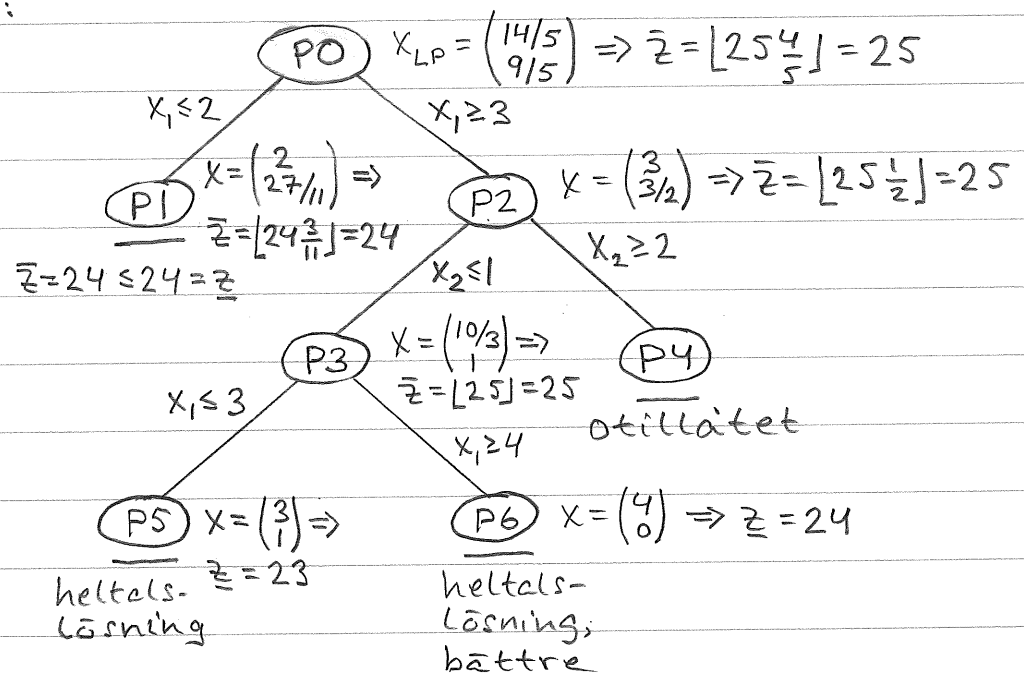 :
P0 X_LP = (14/5 9/5) => z̄ = ⌊25 4/5⌋ = 25
X₁ ≤ 2 X₁ ≥ 3
P1 X = (2 27/11) =>
z̄ = ⌊24 3/11⌋ = 24
z̄ = 24 ≤ 24 = z̲
P2 X = (3 3/2) => z̄ = ⌊25 1/2⌋ = 25
X₂ ≤ 1 X₂ ≥ 2
P3 X = (10/3 1) =>
z̄ = ⌊25⌋ = 25
P4
otillåtet
X₁ ≤ 3 X₁ ≥ 4
P5 X = (3 1) =>
z̲ = 23
heltals-
lösning
P6 X = (4 0) => z̲ = 24
heltals-
lösning,
bättre